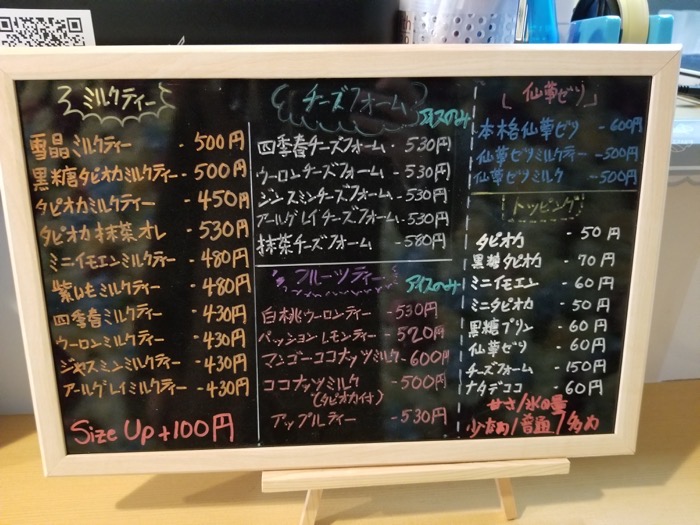 ミルクティー
雪晶ミルクティー - 500円
黒糖タピオカミルクティー - 500円
タピオカミルクティー - 450円
タピオカ抹茶オレ - 530円
ミニイモエンミルクティー - 480円
紫いもミルクティー - 480円
四季春ミルクティー - 430円
ウーロンミルクティー - 430円
ジャスミンミルクティー - 430円
アールグレイミルクティー - 430円
Size Up +100円
チーズフォーム アイスのみ
四季春チーズフォーム - 530円
ウーロンチーズフォーム - 530円
ジンスミンチーズフォーム - 530円
アールグレイチーズフォーム - 530円
抹茶チーズフォーム - 580円
フルーツティー アイスのみ
白桃ウーロンティー - 530円
パッションレモンティー - 520円
マンゴーココナッツミルク - 600円
ココナッツミルク - 500円
(タピオカ付)
アップルティー - 530円
仙草ゼリ
本格仙草ゼリ - 600円
仙草ゼリミルクティー - 500円
仙草ゼリミルク - 500円
トッピング
タピオカ - 50円
黒糖タピオカ - 70円
ミニイモエン - 60円
ミニタピオカ - 50円
黒糖プリン - 60円
仙草ゼリ - 60円
チーズフォーム - 150円
ナタデココ - 60円
甘さ/氷の量
少なめ/普通/多め